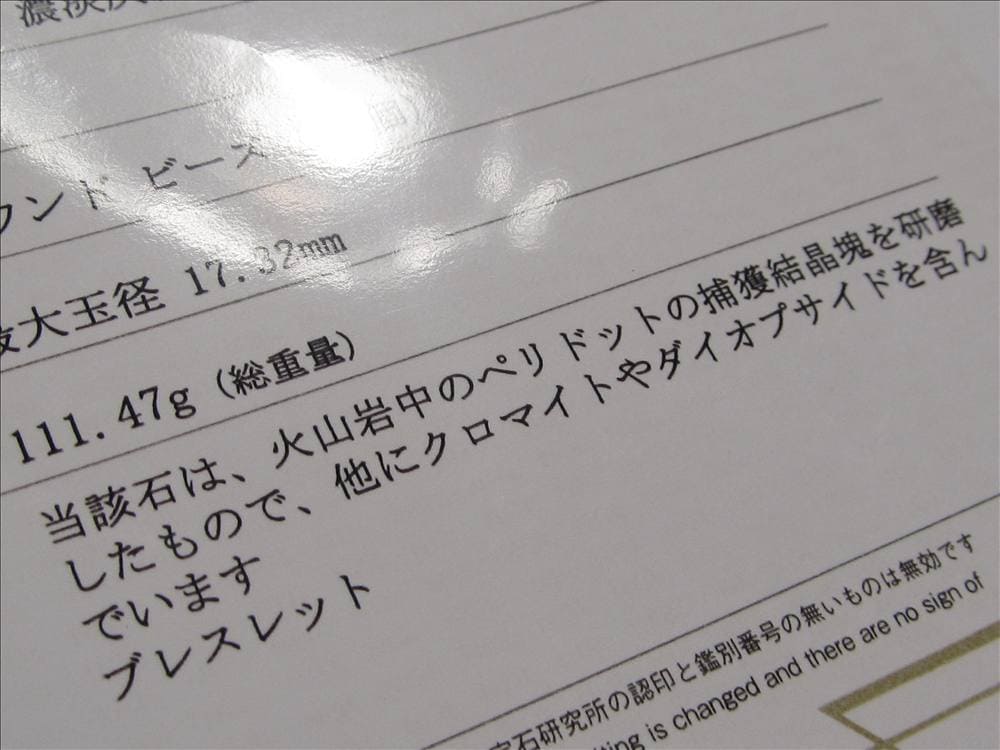 濃淡
ウンド ビーズ
最大玉径 17.32mm
111.47g (総重量)
当該石は、火山岩中のペリドットの捕獲結晶塊を研磨
したもので、他にクロマイトやダイオプサイドを含ん
でいます
ブレスレット
宝石研究所の認印と鑑別番号の無いものは無効です
is changed and there are no sign of